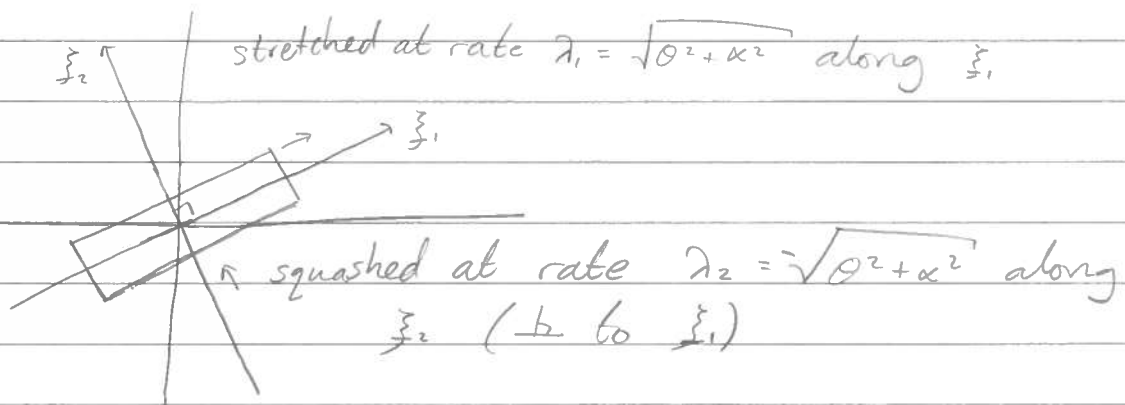 stretched at rate λ₁ = √(θ² + α²) along ξ₁
ξ₂
ξ₁
squashed at rate λ₂ = -√(θ² + α²) along
ξ₂ ( to ξ₁)